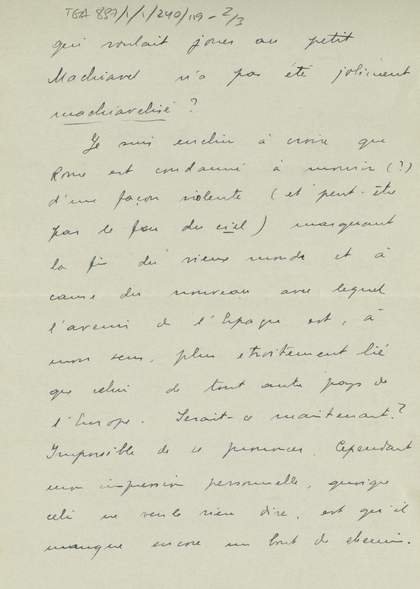 TGA 897/1/1/240/119 - 2/3
qui voulait jouer au petit
Machiavel n'a pas été joliment
machiavelisé ?
Je suis enclin à croire que
Rome est condamné à mourir (?)
d'une façon violente (et peut-être
par le feu du ciel) marquant
la fin du vieux monde et à
cause du nouveau avec lequel
l'avenir de l'Espagne est, à
mon sens, plus etroitement lié
que celui de tout autre pays de
l'Europe. Serait-ce maintenant ?
Impossible de ce prononcer. Cependant
mon impression personnelle, quoique
celà ne veule rien dire, est qu'il
manque encore un bout de chemin.